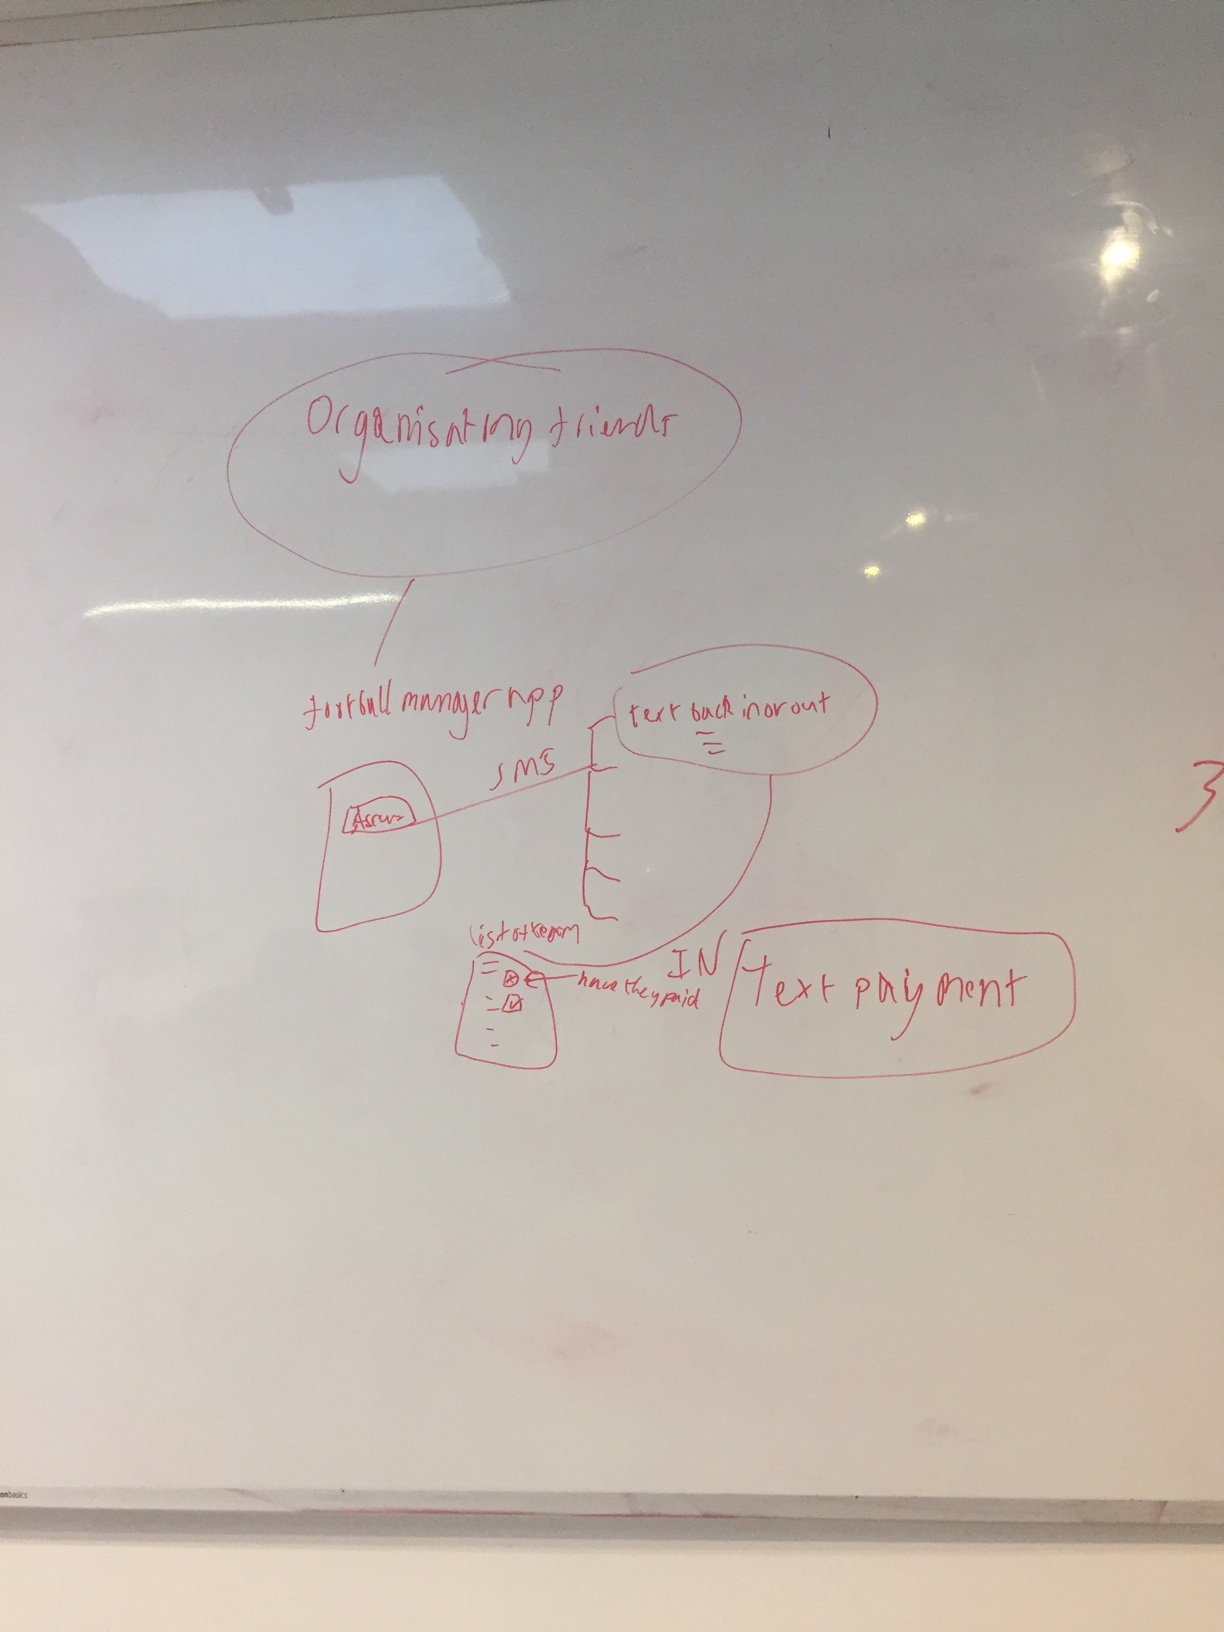 Organisating friends
football manager app
text back in or out
SMS
3
list of team
IN
have they paid
Text payment